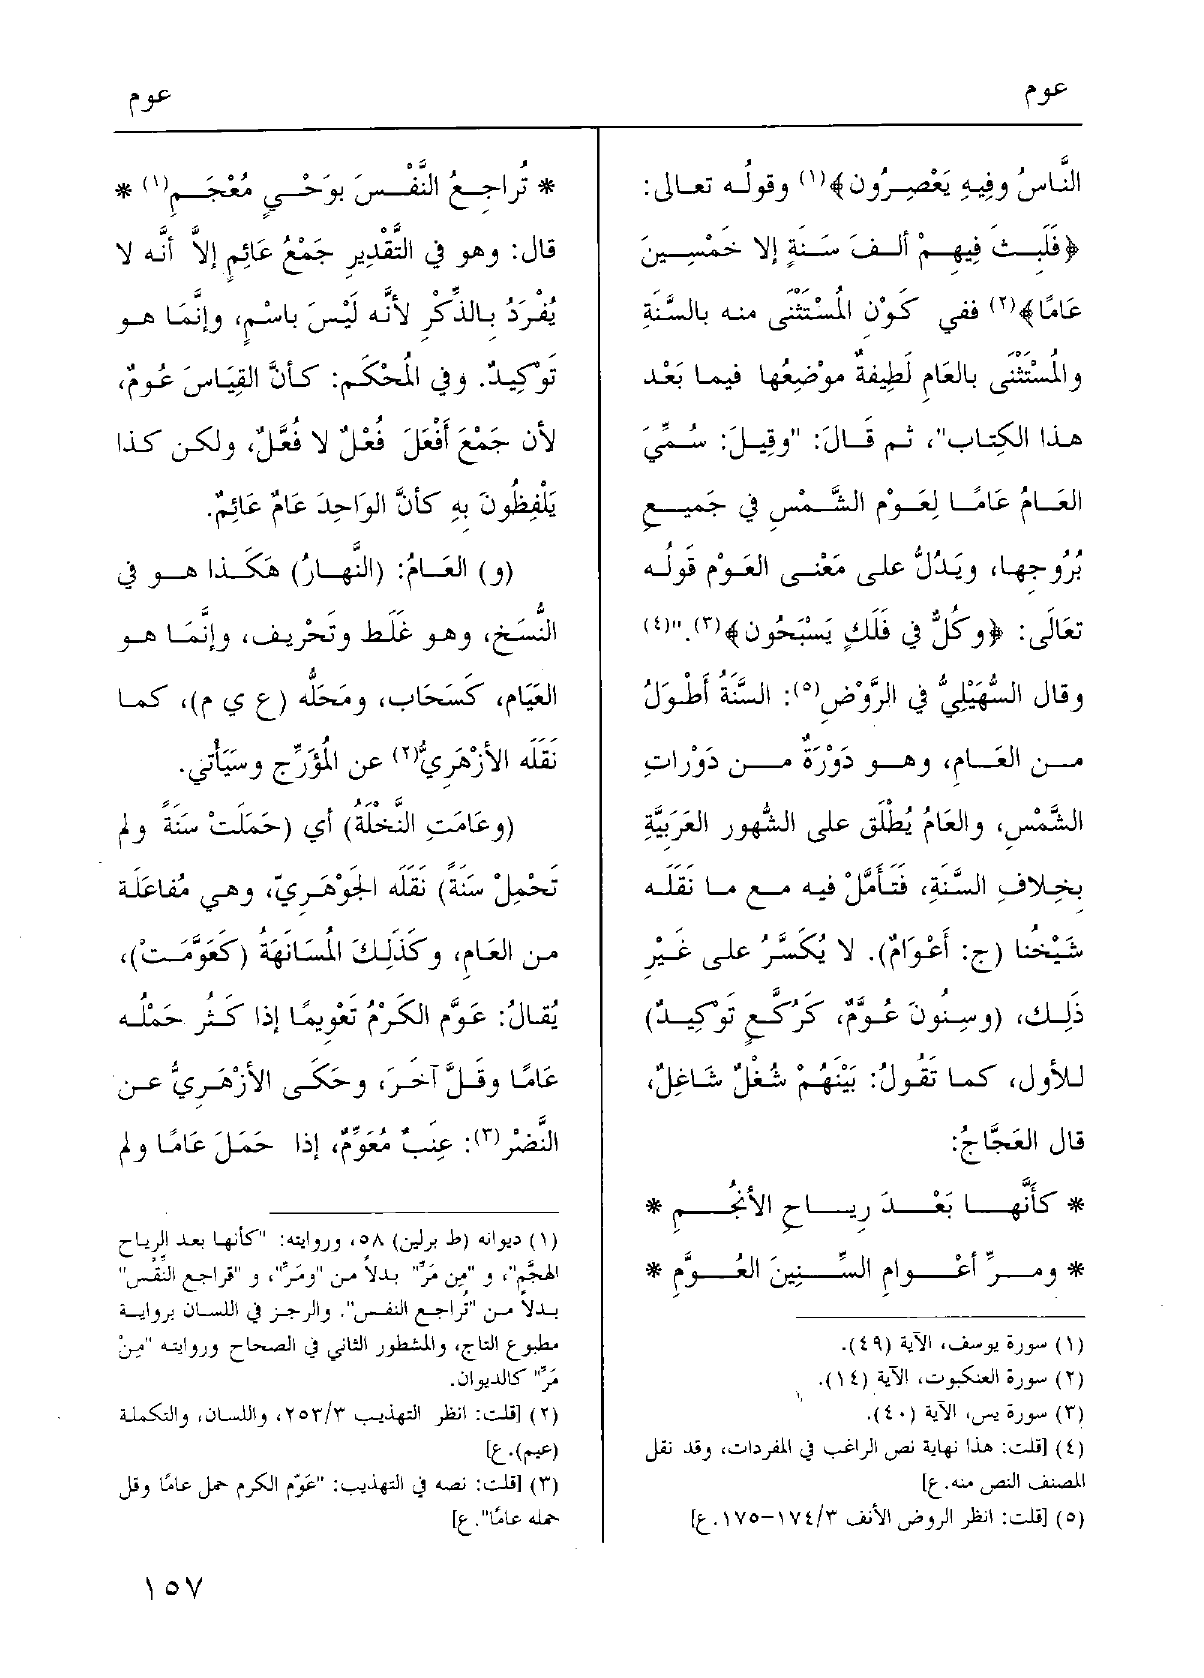 عوم
عوم
النَّاسُ وفِيهِ يَعْصِرُون﴾(١) وقولُه تعالى:
﴿فَلَبِثَ فِيهِمْ أَلفَ سَنَةٍ إلا خَمْسِينَ
عَامًا﴾(٢) ففي كَوْنِ المُسْتَثْنَى منه بالسَّنَةِ
والمُسْتَثْنَى بالعَامِ لَطِيفَةٌ موْضِعُها فيما بَعْد
هذا الكِتابِ"، ثم قَالَ: "وقِيلَ: سُمِّيَ
العَامُ عَامًا لِعَوْمِ الشَّمْسِ فِي جَمِيعِ
بُرُوجِها، ويَدُلُّ على مَعْنى العَوْمِ قَولُه
تعَالَى: ﴿وكُلٌّ فِي فَلَكٍ يَسْبَحُون﴾(٣)."(٤)
وقال السُّهَيْلِيُّ في الرَّوْضِ(٥): السَّنَةُ أَطْوَلُ
من العَامِ، وهو دَوْرَةٌ من دَوْراتِ
الشَّمْسِ، والعَامُ يُطْلَق على الشُّهورِ العَرَبِيَّةِ
بِخِلافِ السَّنَةِ، فَتَأَمَّلْ فيه مع ما نَقَلَه
شَيْخُنا (ج: أَعْوَامٌ). لا يُكَسَّرُ على غَيْرِ
ذَلِك، (وسِنُونَ عُوَّمٌ، كَرُكَّعٍ تَوْكِيدٌ)
للأولِ، كما تَقُولُ: بَيْنَهُمْ شُغْلٌ شَاغِلٌ،
قال العَجَّاجُ:
* كأَنَّها بَعْدَ رِياحِ الأَنْجُمِ *
* ومرِّ أعْوامِ السِّنِينَ العُوَّمِ *
(١) سورة يوسف، الآية (٤٩).
(٢) سورة العنكبوت، الآية (١٤).
(٣) سورة يس، الآية (٤٠).
(٤) [قلت: هذا نهاية نص الراغب في المفردات، وقد نقل
المصنف النص منه. ع]
(٥) [قلت: انظر الروض الأنف ٣/١٧٤-١٧٥. ع]
* تُراجِعُ النَّفْسَ بوَحْيٍ مُعْجَمِ(١) *
قال: وهو في التَّقْدِيرِ جَمْعُ عَائِمٍ إلاَّ أَنَّه لا
يُفْرَدُ بالذِّكْرِ لأنَّه لَيْسَ باسْمٍ، وإنَّمَا هو
تَوْكِيدٌ. وفي المُحْكَمِ: كأنَّ القِيَاسَ عُومٌ،
لأن جَمْعَ أَفْعَلَ فُعْلٌ لا فُعَّلٌ، ولكن كذا
يَلْفِظُونَ بِهِ كأنَّ الواحِدَ عَامٌ عَائِمٌ.
(و) العَامُ: (النَّهارُ) هَكَذا هو في
النُّسَخِ، وهو غَلَط وتَحْرِيف، وإنَّمَا هو
العَيَام، كَسَحَاب، ومَحَلُّه (ع ي م)، كما
نَقَلَه الأَزْهَرِيُّ(٢) عن المُؤَرِّج وسَيَأْتي.
(وعَامَتِ النَّخْلَةُ) أي (حَمَلَتْ سَنَةً ولم
تَحْمِلْ سَنَةً) نَقَلَه الجَوْهَرِيّ، وهي مُفاعَلَة
من العَامِ، وكَذَلِكَ المُسَانَهَةُ (كَعَوَّمَتْ)،
يُقالُ: عَوَّم الكَرْمُ تَعْوِيمًا إذا كَثُر حَمْلُه
عَامًا وقَلَّ آخَرَ، وحَكَى الأَزْهَرِيُّ عن
النَّضْرِ(٣): عِنَبٌ مُعَوِّمٌ، إذا حَمَلَ عَامًا ولم
(١) ديوانه (ط برلين) ٥٨، وروايته: "كأنها بعد الرِّياح
الهجَّم"، و "مِن مَرّ" بدلاً من "ومَرّ"، و "قراجع النَّقْس"
بدلاً من "تُراجع النفس". والرجز في اللسان برواية
مطبوع التاج، والمشطور الثاني في الصحاح وروايته "مِنْ
مَرِّ" كالديوان.
(٢) [قلت: انظر التهذيب ٢٥٣/٣، واللسان، والتكملة
(عيم). ع]
(٣) [قلت: نصه في التهذيب: "عَوّم الكرم حمل عامًا وقل
حمله عامًا". ع]
١٥٧